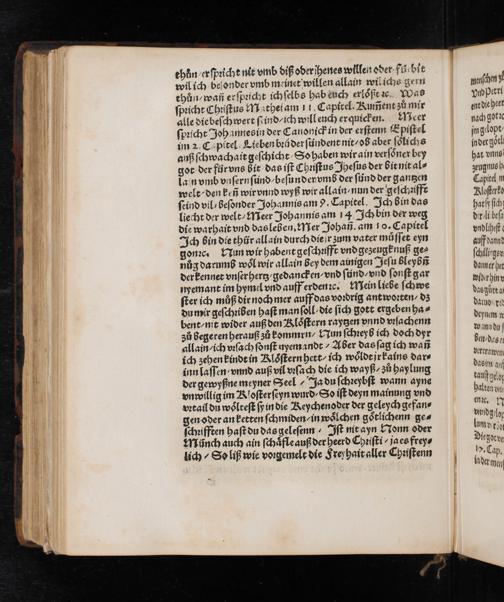 thůn / er spricht nit vmb diß oder jhenes willen oder fürbit
wil ich besonder vmb meinet willen allain wil ichs gern
thůn / wañ er spricht ich selbs hab euch erlößt ꝛc. Was
spricht Christus Mathei am 11. Capitel. Kument zů mir
alle die beschwert seind / ich will euch erquicken. Meer
spricht Johannes in der Canonick in der ersten Epistel
im 2. Capitel. Lieben brüder sündent nit / ob aber sölichs
auß schwachait geschicht. So haben wir ain versöner bey
got der für vns bit das ist Christus Jhesus der bit nit al-
lain vmb vnsern sünd / besunder vmb der sünd der gantzen
welt / den keñ wir vnnd wyß wir allain / nun der geschrifft
seind vil / besonder Johannis am 9. Capitel. Ich bin das
liecht der welt / Meer Johannis am 14 Ich bin der weg
die warhait vnd das leben. Mer Johañ. am 10. Capitel
Ich bin die thür allain durch die jr zum vater müsset eyn
gon ꝛc. Nun wir habent geschrifft vnd gezeugknuß ge-
nůg darumb wöl wir allain bey dem ainigen Jesu bleybñ
der kennet vnser herg / gedancken / vnd sünd / vnd sonst gar
nyemant im hymel vnd auff erden ꝛc. Mein liebe schwe
ster ich můß dir noch mer auff das vordrig antworten / dz
du mir geschriben hast man soll die sich gott ergeben ha-
bent / nit wider auß den Klöstern raytzen vnnd vrsachenn
zů begeren herauß zů kommen / Nun schreyb ich doch dyr
allain / ich vrsach sonst nyemandt / Aber das sag ich wañ
ich zehen kindt in Klöstern hett / ich wöldt jr kains dar-
inn lassen / vnnd auß vil vrsach die ich wayß / zů haylung
der gewyßne meyner Seel / Ja du schreybst wann ayne
vnwillig im Kloster seyn wurd / So ist deyn mainung vnd
vrtail du wöltest sy in die Keychen oder der geleych gefan-
gen oder an ketten schmiden / in wölchen götlichenn ge-
schrifften hast du das gelesenn / Ist nit ayn Nonn oder
Münch auch ain schäfle auß der heerd Christi / ja es frey-
lich / So liß wie vorgemelt die Freyhait aller Christenn